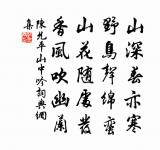 山深春亦寒
野鳥聲綿蠻
山花隨處發
香風吹幽蘭
陳允平山中吟詞典網
集